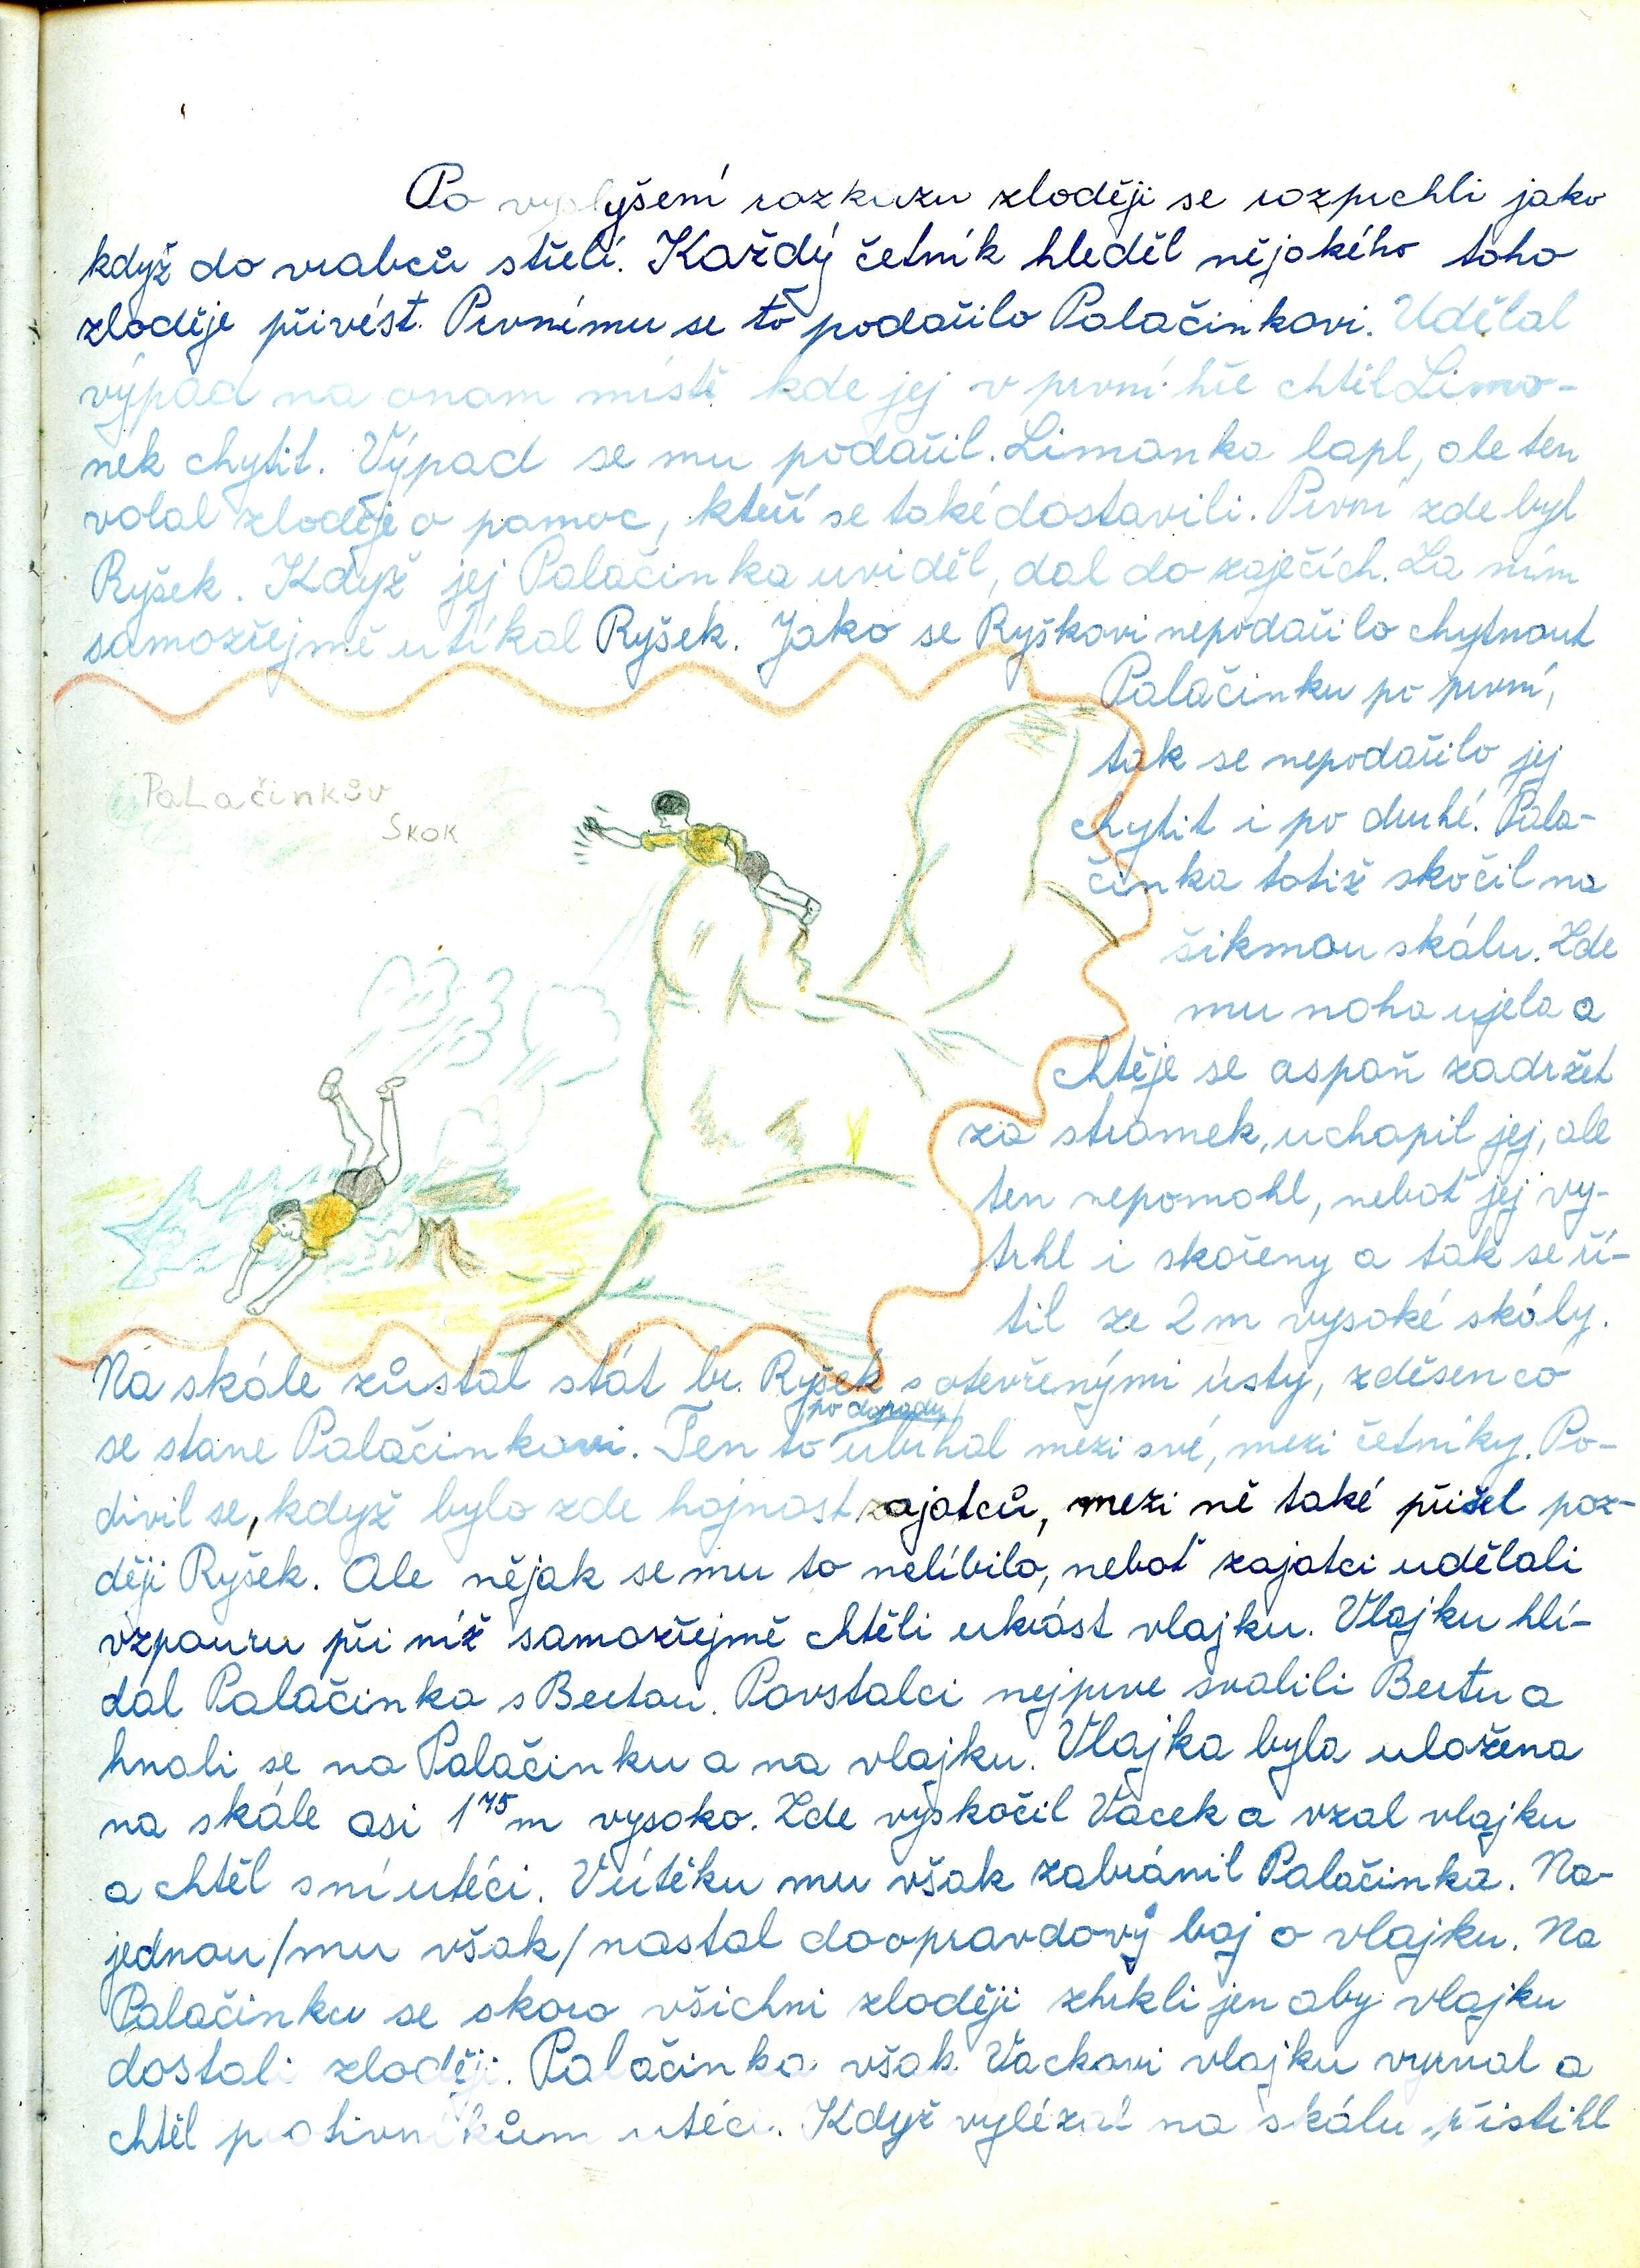 Po vyslyšení rozkazu zloději se rozprchli jako
když do vrabců střelí. Každý četník hleděl nějakého toho
zloděje přivést. Prvnímu se to podařilo Palačinkovi. Udělal
výpad na onom místě kde jej v první hře chtěl Limo-
nek chytit. Výpad se mu podařil. Limonka lapl, ale ten
volal zloděje o pomoc, kteří se také dostavili. První zde byl
Ryšek. Když jej Palačinka uviděl, dal do zaječích. Za ním
samozřejmě utíkal Ryšek. Jako se Ryškovi nepodařilo chytnout
Palačinku po první,
tak se nepodařilo jej
chytit i po druhé. Pala-
činka totiž skočil na
šikmou skálu. Zde
mu noha ujela a
chtěje se aspoň zadržet
za stromek, uchopil jej, ale
ten nepomohl, neboť jej vy-
trhl i skořeny a tak se ří-
til ze 2m vysoké skály.
PaLačinkův
Skok
Na skále zůstal stát br. Ryšek s otevřenými ústy, zděsen co
se stane Palačinkovi. Ten to po dopadu ubíhal mezi své, mezi četníky. Po-
divil se, když bylo zde hojnost zajatců, mezi ně také přišel poz-
ději Ryšek. Ale nějak se mu to nelíbilo, neboť zajatci udělali
vzpouru při níž samozřejmě chtěli ukrást vlajku. Vlajku hlí-
dal Palačinka s Bertou. Povstalci nejprve svalili Bertu a
hnali se na Palačinku a na vlajku. Vlajka byla uložena
na skále asi 1⁷⁵m vysoko. Zde vyskočil Vacek a vzal vlajku
a chtěl s ní utéci. V útěku mu však zabránil Palačinka. Na-
jednou /mu však/ nastal doopravdový boj o vlajku. Na
Palačinku se skoro všichni zloději zhrkli jen aby vlajku
dostali zloději. Palačinka však Vackovi vlajku vyrval a
chtěl protivníkům utéci. Když vylézal na skálu přistihl